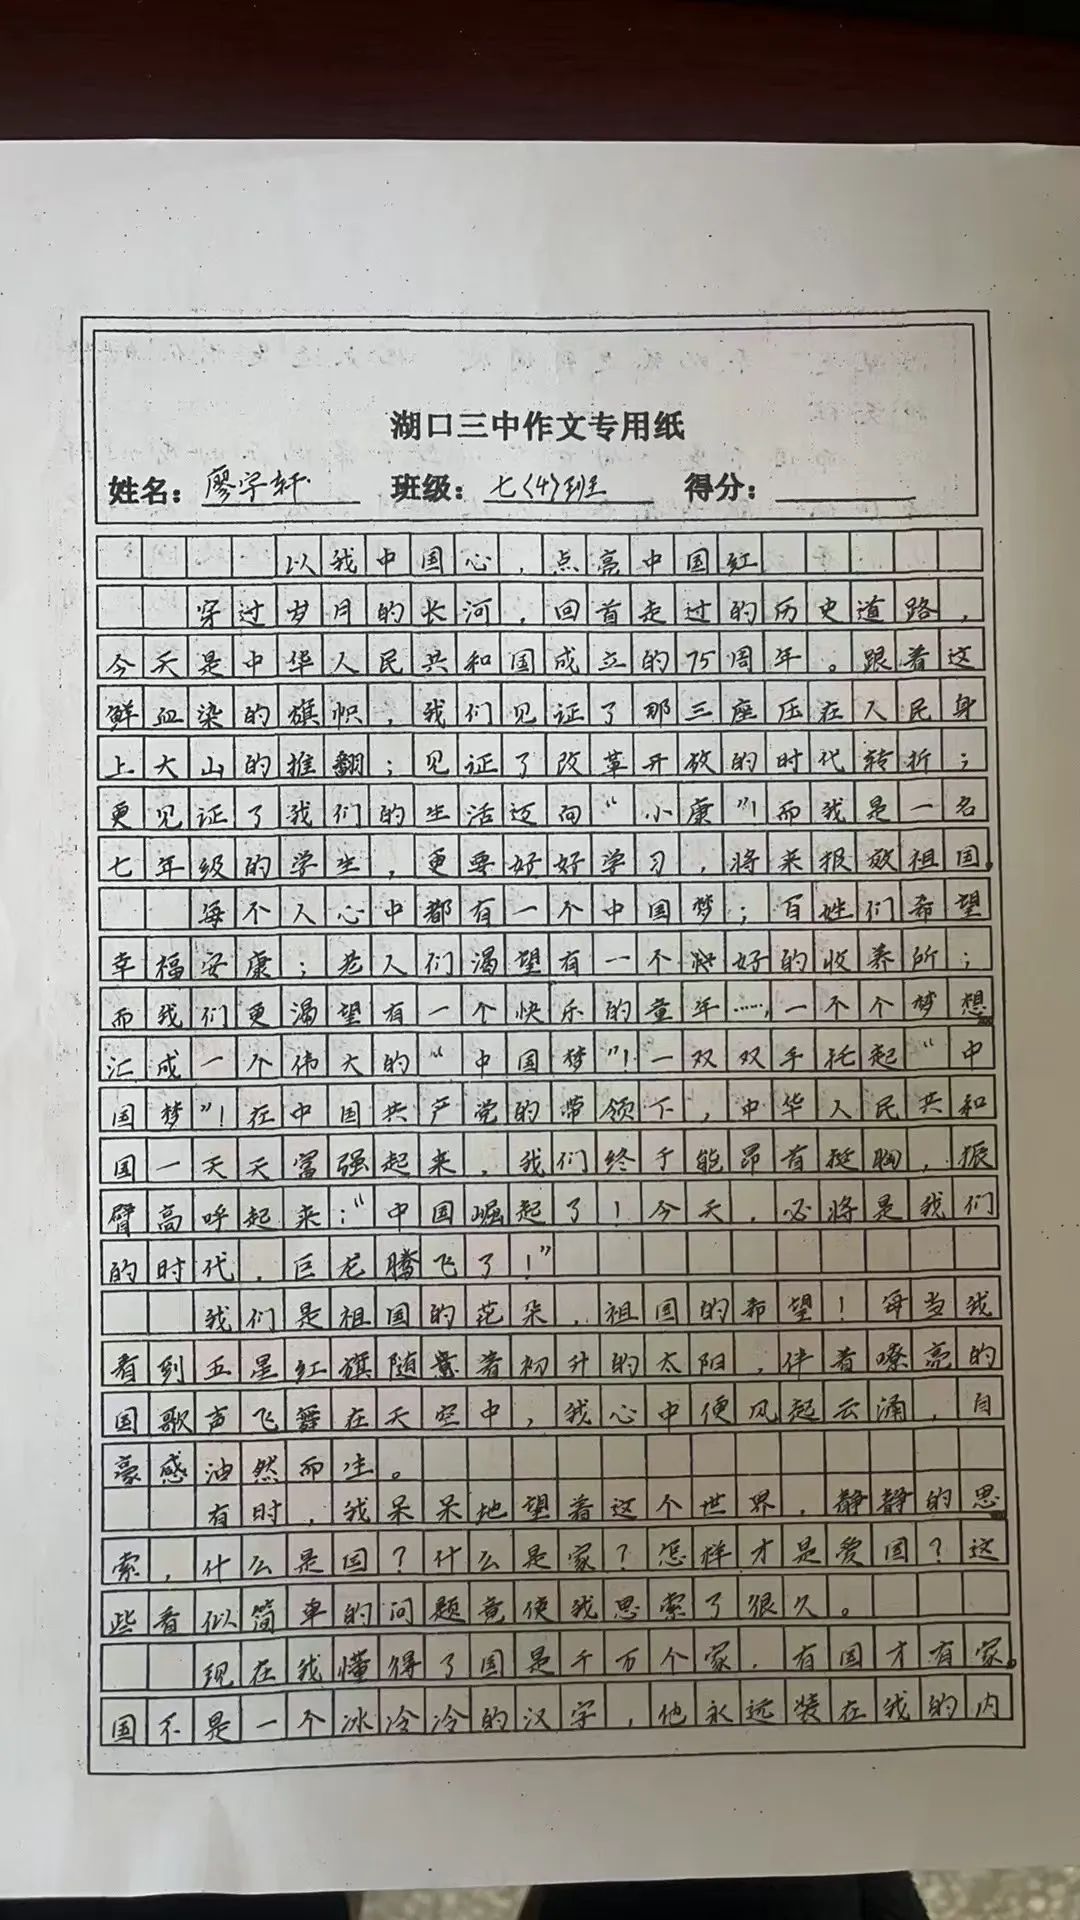 湖口三中作文专用纸
姓名：廖宇轩 班级：七〈4〉班 得分：
以我中国心，点亮中国红
穿过岁月的长河，回首走过的历史道路，
今天是中华人民共和国成立的75周年。跟着这
鲜血染的旗帜，我们见证了那三座压在人民身
上大山的推翻；见证了改革开放的时代转折；
更见证了我们的生活迈向“小康”！而我是一名
七年级的学生，更要好好学习，将来报效祖国。
每个人心中都有一个中国梦；百姓们希望
幸福安康；老人们渴望有一个好的收养所；
而我们更渴望有一个快乐的童年……一个个梦想
汇成一个伟大的“中国梦”！一双双手托起“中
国梦”！在中国共产党的带领下，中华人民共和
国一天天富强起来，我们终于能昂首挺胸，振
臂高呼起来：“中国崛起了！今天，必将是我们
的时代，巨龙腾飞了！”
我们是祖国的花朵，祖国的希望！每当我
看到五星红旗随着初升的太阳，伴着嘹亮的
国歌声飞舞在天空中，我心中便风起云涌，自
豪感油然而生。
有时，我呆呆地望着这个世界，静静的思
索，什么是国？什么是家？怎样才是爱国？这
些看似简单的问题竟使我思索了很久。
现在我懂得了国是千万个家，有国才有家。
国不是一个冰冷冷的汉字，他永远装在我的内